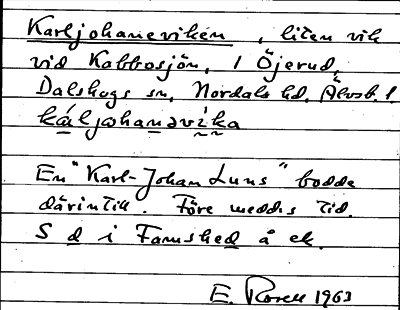 Karljohaneviken, liten vik
vid Kabbosjön, i Öjerud,
Dalskogs sn, Nordals hd, Älvsb. l.
kàljohanəvika
En "Karl-Johan Luns" bodde
därintill. Före medds tid.
S d i
E. Rosell 1963